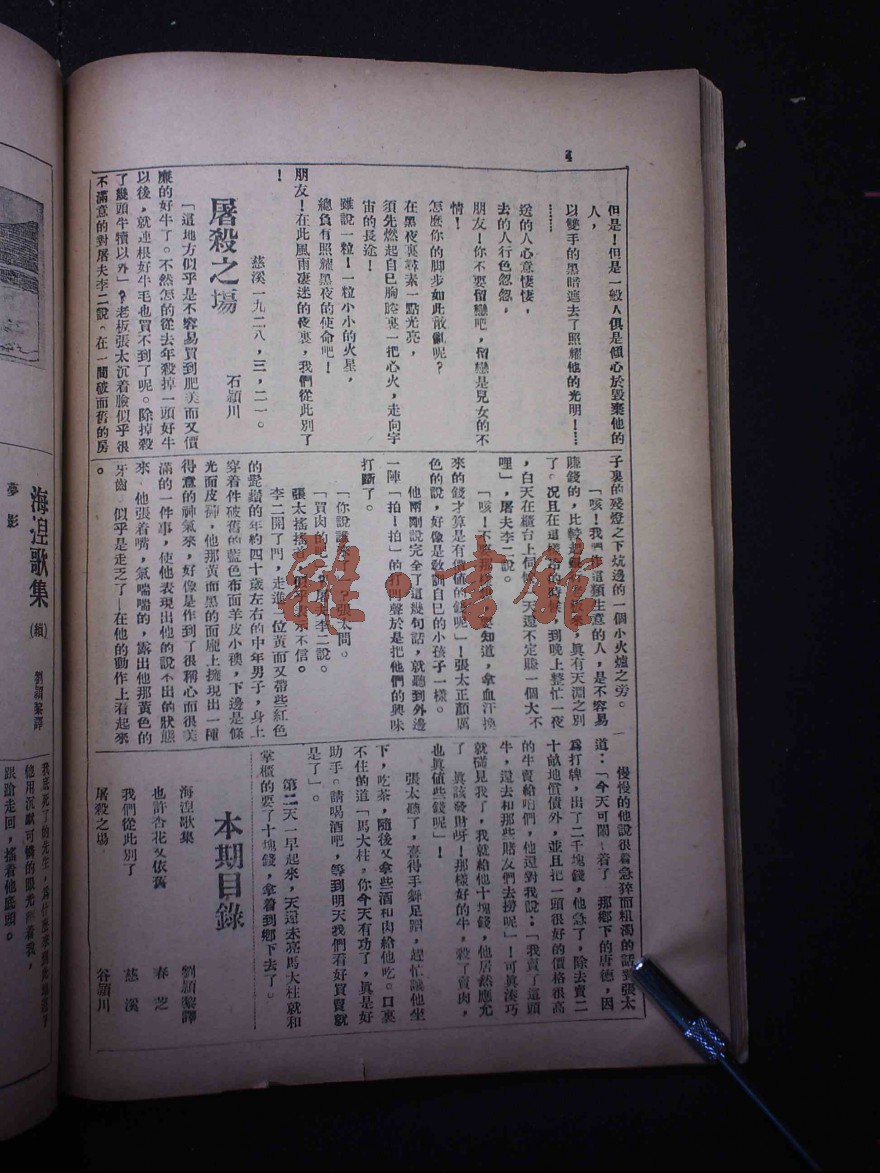 4
但是!但是一般人俱是傾心於毀棄他的
人,
以雙手的黑暗遮去了照耀他的光明!……
……
送的人心意悽悽,
去的人行色忽忽,
朋友!你不要留戀吧,留戀是兒女的不
情!
怎麼你的脚步如此散亂呢?
在黑夜裏尋素一點光亮,
須先燃起自己胸腔裏一把心火,走向宇
宙的長途!
雖說一粒!一粒小小的火星,
總負有照耀黑夜的使命吧!
朋友!在此風雨凄迷的夜裏,我們從此別了
!
慈溪一九二八,三,二一。
屠殺之塲
石潁川
「這地方似乎是不容易買到肥美而又價
廉的好牛了。不然怎的從去年殺掉一頭好牛
以後,就連根好牛毛也買不到了呢。除掉殺
了幾頭牛犢以外」?老板張太沉着臉似乎很
不滿意的對屠夫李二說。在一間破而舊的房
子裏的殘燈之下炕边的一個小火爐之旁。
「咳!我們作這類生意的人,是不容易
賺錢的,比
真有天淵之別
了。况且在這樣冷的時候,到晚上整忙一夜
,白天在櫃台上伺候一天還不定賺一個大不
哩」,屠夫李二說。
「咳!不要那樣
要知道,拿血汗換
來的錢才算是有價值的錢呢」!張太正顏厲
色的說,好像是敎訓自已的小孩子一樣。
他兩剛說完全了這幾句話,就聽到外邊
一陣「拍!拍」的打門聲於是把他們的興味
打斷了。
「你說誰來了」?張太問。
「買肉的吧」!屠夫李二說。
張太搖搖首,似乎表示不信。
李二開了門,走進一位黃面又帶些紅色
的髭鬚的年約四十歲左右的中年男子,身上
穿着件破舊的藍色布面羊皮小襖,下邊是條
光面皮褲,他那黃而黑的面龐上擁現出一種
得意的神氣來,好像是作到了很稱心而很美
滿的一件事,使他表現出他的說不出的狀態
來。他張着嘴,氣喘喘的,露出他那黃色的
牙齒。似乎是走乏了—在他的動作上看起來
。
慢慢的他說很着急猝而粗濁的話對張太
道:「今天可鬧!着了。那鄉下的唐德,因
爲打牌,出了二千塊錢,他急了,除去賣二
十畝地償債外,並且把一頭很好的價格很高
的牛賣給咱們,他還對我說:「我賣了這頭
牛,還去和那些賭友們去撈呢」!可眞湊巧
就碰見我了,我就給他十塊錢,他居然應允
了。眞該發財呀!那樣好的牛,殺了賣肉,
也眞値些錢呢」!
張太聽了,喜得手舞足蹈,趕忙讓他坐
下,吃茶,隨後又拿些酒和肉給他吃。口裏
不住的道「馬大柱,你今天有功了,眞是好
助手。請喝酒吧,等到明天我們看好買賣就
是了」。
第二天一早起來,天還未亮馬大柱就和
掌櫃的要了十塊錢,拿着到鄉下去了。
本期目錄
海湟歌集 劉潁黎譯
也許杏花又依舊 春芝
我們從此別了 慈溪
屠殺之塲 谷潁川
海湟歌集(續) 劉潁黎譯
夢影
他用沉默可憐的眼光
着我,
跟蹌走回,搖着他底頭。
雜·書館